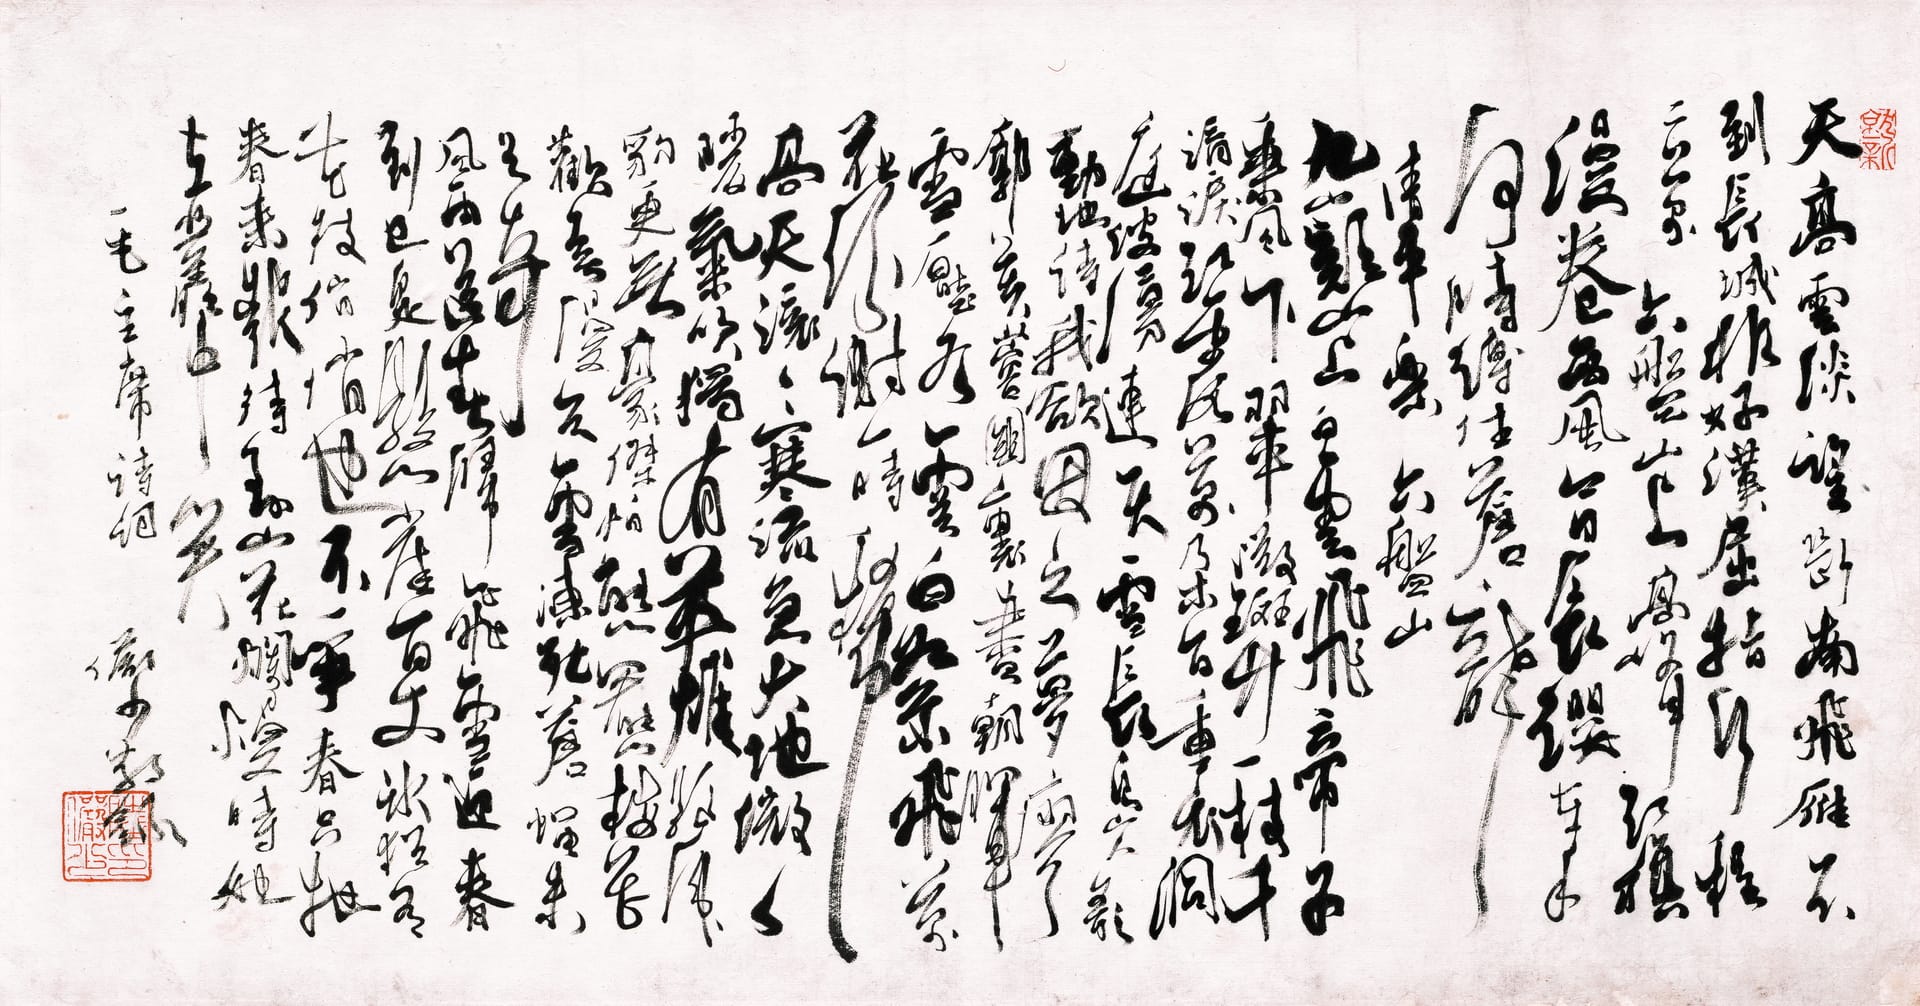 天高雲淡望斷南飛雁不
到長城非好漢屈指行程
二万六盤山上高峰紅旗
漫卷西風今日長纓在手
何時縛住蒼龍
清平樂 六盤山
九嶷山上白雲飛帝子
乘風下翠微斑竹一枝千
滴淚紅霞萬朵百重衣洞
庭波湧連天雪長島人歌
動地詩我欲因之夢寥
廓芙蓉國裏盡朝暉
雪壓冬雲白絮飛萬
花紛謝一時稀
高天滾〻寒流急大地微〻
暖氣吹獨有英雄驅虎
豹更無豪傑怕熊羆梅花
歡喜漫天雪凍死蒼蠅未
足奇
風雨送春歸飛雪迎春
到已是懸崖百丈冰猶有
花枝俏俏也不爭春只把
春來報待到山花爛漫時她
在叢中笑
毛主席詩詞
儼少敬錄